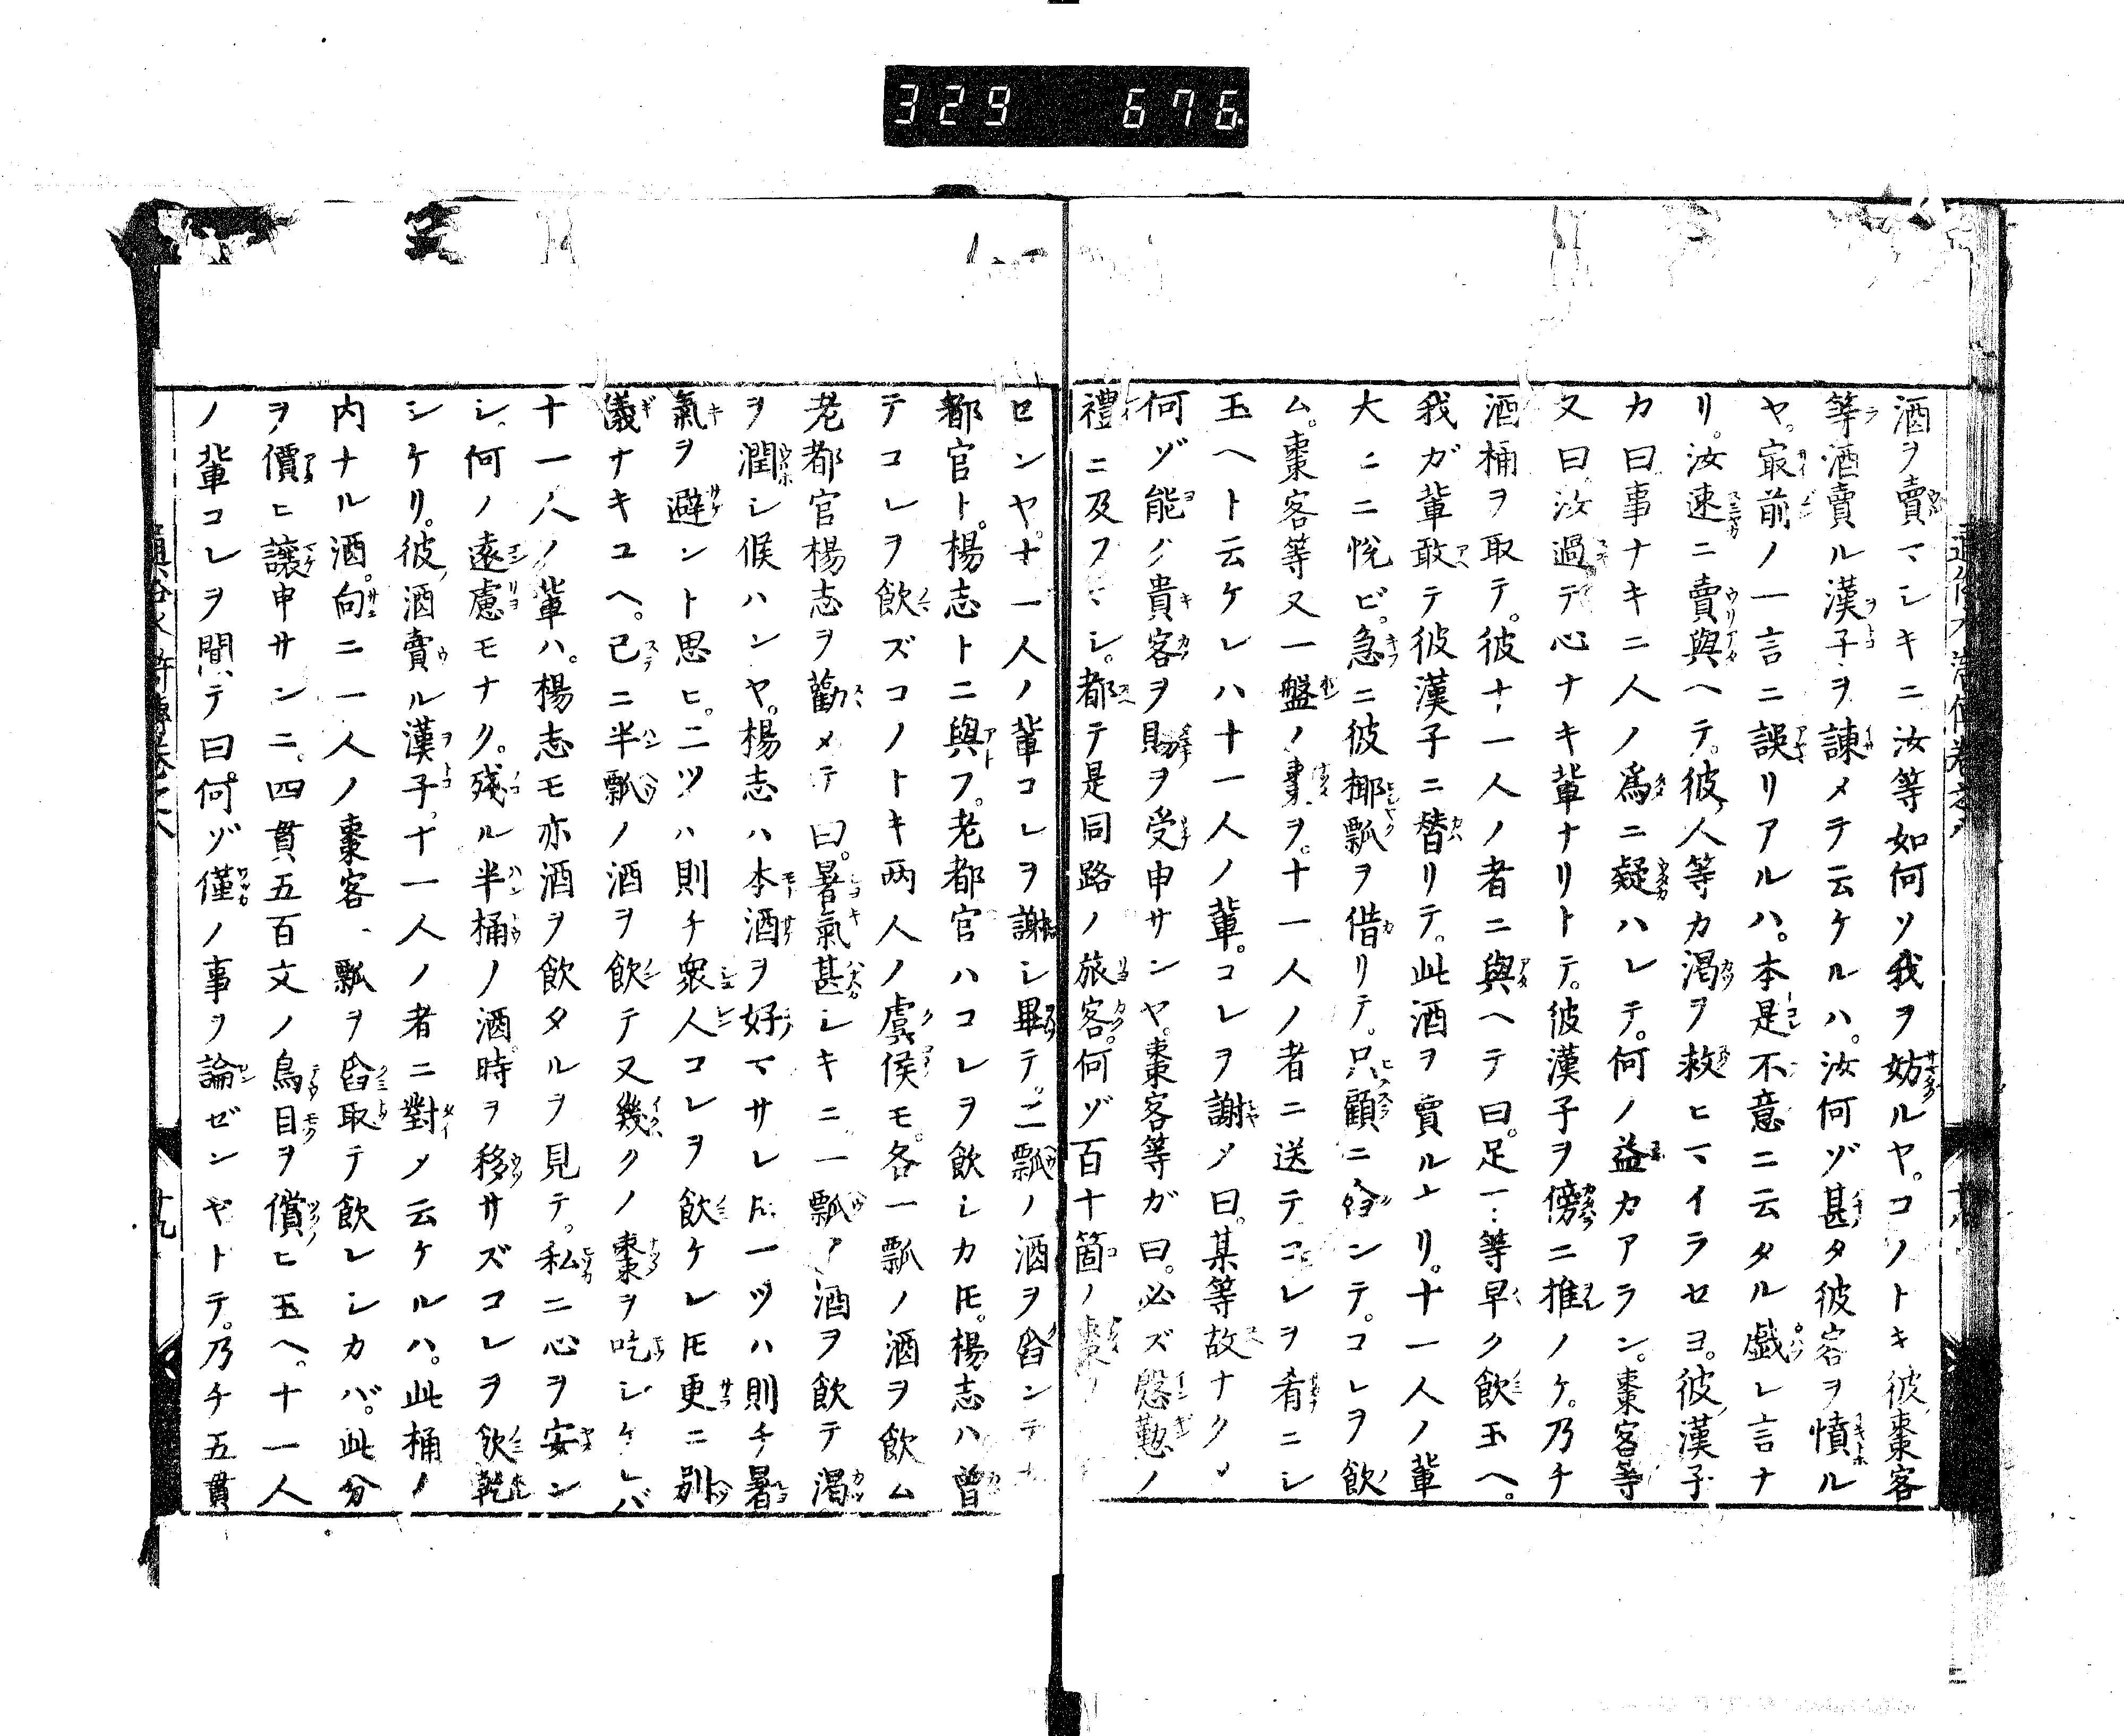 329 676
酒ヲ賣マシキニ汝等如何ソ我ヲ妨ルヤ。コノトキ彼棗客
等酒賣ル漢子ヲ諫メテ云ケルハ。汝何ゾ甚タ彼客ヲ憤ル
ヤ。最前ノ一言ニ誤リアルハ。本是不意ニ云タル戯レ言ナ
リ。汝速ニ賣與ヘテ。彼人等カ渇ヲ救ヒマイラセヨ。彼漢子
カ曰事ナキニ人ノ爲ニ疑ハレテ。何ノ益カアラン。棗客等
又曰汝過テ心ナキ輩ナリトテ。彼漢子ヲ傍ニ推ノケ。乃チ
酒桶ヲ取テ。彼十一人ノ者ニ與ヘテ曰。足下等早ク飲玉ヘ。
我ガ輩敢テ彼漢子ニ替リテ。此酒ヲ賣ルナリ。十一人ノ輩
大ニニ悅ビ。急ニ彼椰瓢ヲ借リテ。只顧ニ舀ンテ。コレヲ飲
ム。棗客等又一盤ノ棗ヲ。十一人ノ者ニ送テコレヲ肴ニシ
玉ヘト云ケレハ十一人ノ輩。コレヲ謝メ曰。某等故ナクメ
何ゾ能ク貴客ヲ賜ヲ受申サンヤ。棗客等ガ曰。必ズ慇懃ノ
禮ニ及フマシ。都テ是同路ノ旅客。何ゾ百十箇ノ棗ヲ
ロンヤ。十一人ノ輩コレヲ謝シ畢テ。二瓢ノ酒ヲ舀ンテ
都官ト。楊志トニ與フ。老都官ハコレヲ飲シカ𪜈。楊志ハ曾
テコレヲ飲ズコノトキ兩人ノ虞候モ。各一瓢ノ酒ヲ飲ム
老都官楊志ヲ勸メテ曰。暑氣甚シキニ一瓢ノ酒ヲ飲テ渇
ヲ潤シ候ハンヤ。楊志ハ本酒ヲ好マサレ𪜈一ツハ則チ暑
氣ヲ避ント思ヒ。二ツハ則チ衆人コレヲ飲ケレ𪜈更ニ別
儀ナキユヘ。已ニ半瓢ノ酒ヲ飲テ又幾クノ棗ヲ吃シケレバ
十一人ノ輩ハ。楊志モ亦酒ヲ飲タルヲ見テ。私ニ心ヲ安ン
シ。何ノ遠慮モナク。殘ル半桶ノ酒時ヲ移サズコレヲ飲乾
シケリ。彼酒賣ル漢子。十一人ノ者ニ對メ云ケルハ。此桶ノ
内ナル酒。向ニ一人ノ棗客、瓢ヲ舀取テ飲レシカバ。此分
ヲ價ヒ讓申サンニ。四貫五百文ノ鳥目ヲ償ヒ玉ヘ。十一人
ノ輩コレヲ聞テ曰何ゾ僅ノ事ヲ論ゼンヤトテ。乃チ五貫
十九